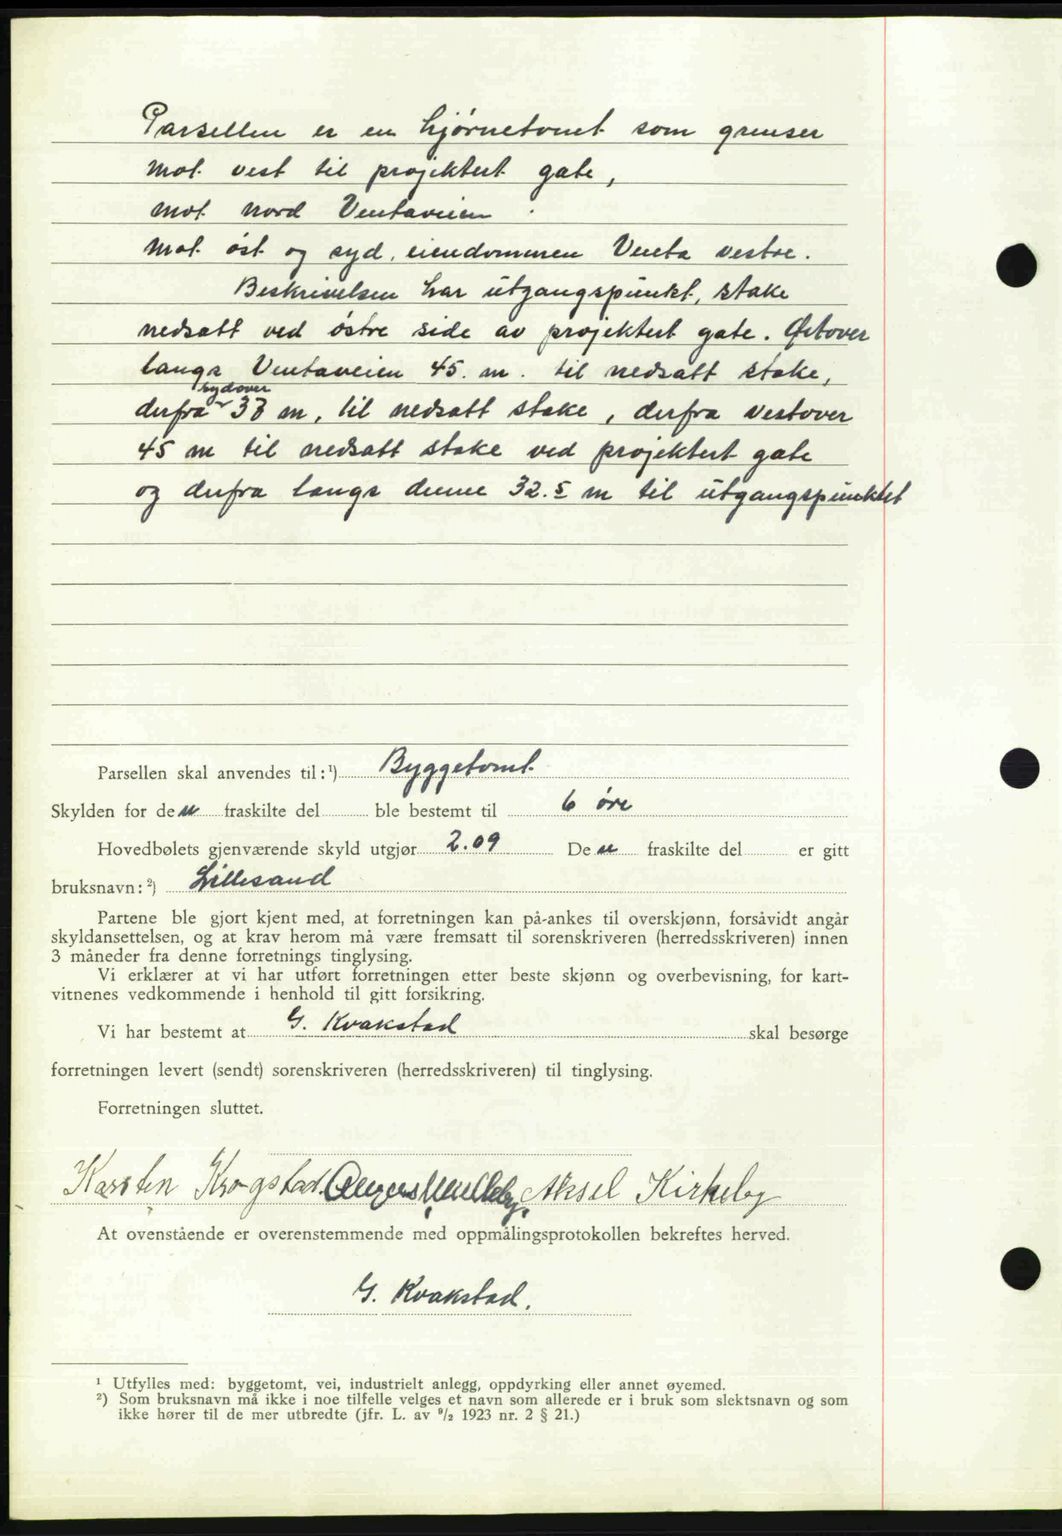 Parsellen er en hjørnetomt som grenser
mot vest til projektert gate,
mot nord Ventaveien.
mot øst og syd, eiendommen Venta vestre.
Beskrivelsen har utgangspunkt, stake
nedsatt ved østre side av projektert gate. Østover
langs Ventaveien 45. m. til nedsatt stake,
sydover
derfra 33 m, til nedsatt stake, derfra vestover
45 m til nedsatt stake ved projektert gate
og derfra langs denne 32.5 m til utgangspunktet
Parsellen skal anvendes til:¹) Byggetomt
Skylden for den fraskilte del ble bestemt til 6 øre
Hovedbølets gjenværende skyld utgjør 2.09 Den fraskilte del er gitt
bruksnavn:²) Lillesand
Partene ble gjort kjent med, at forretningen kan på-ankes til overskjønn, forsåvidt angår
skyldansettelsen, og at krav herom må være fremsatt til sorenskriveren (herredsskriveren) innen
3 måneder fra denne forretnings tinglysing.
Vi erklærer at vi har utført forretningen etter beste skjønn og overbevisning, for kart-
vitnenes vedkommende i henhold til gitt forsikring.
Vi har bestemt at G. Kvakstad skal besørge
forretningen levert (sendt) sorenskriveren (herredsskriveren) til tinglysing.
Forretningen sluttet.
Karsten Krogstad. Aksel Kirkeby
At ovenstående er overenstemmende med oppmålingsprotokollen bekreftes herved.
G. Kvakstad.
¹ Utfylles med: byggetomt, vei, industrielt anlegg, oppdyrking eller annet øyemed.
²) Som bruksnavn må ikke i noe tilfelle velges et navn som allerede er i bruk som slektsnavn og som
ikke hører til de mer utbredte (jfr. L. av ⁹/₂ 1923 nr. 2 § 21.)